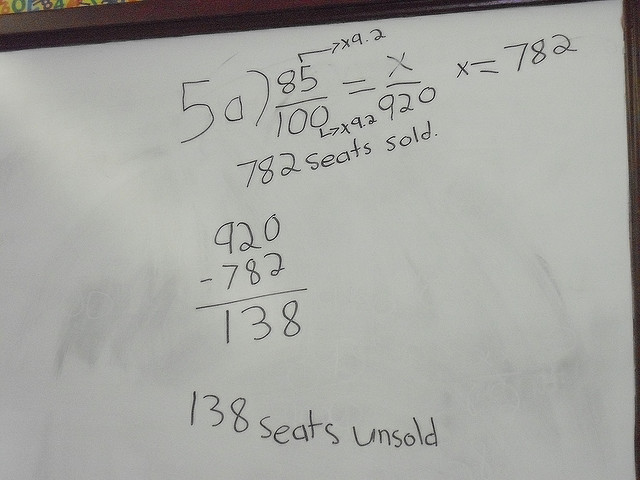 →x9.2
5a) 85/100 = x/920 x = 782
→x9.2
782 seats sold.
920
- 782
138
138 seats unsold